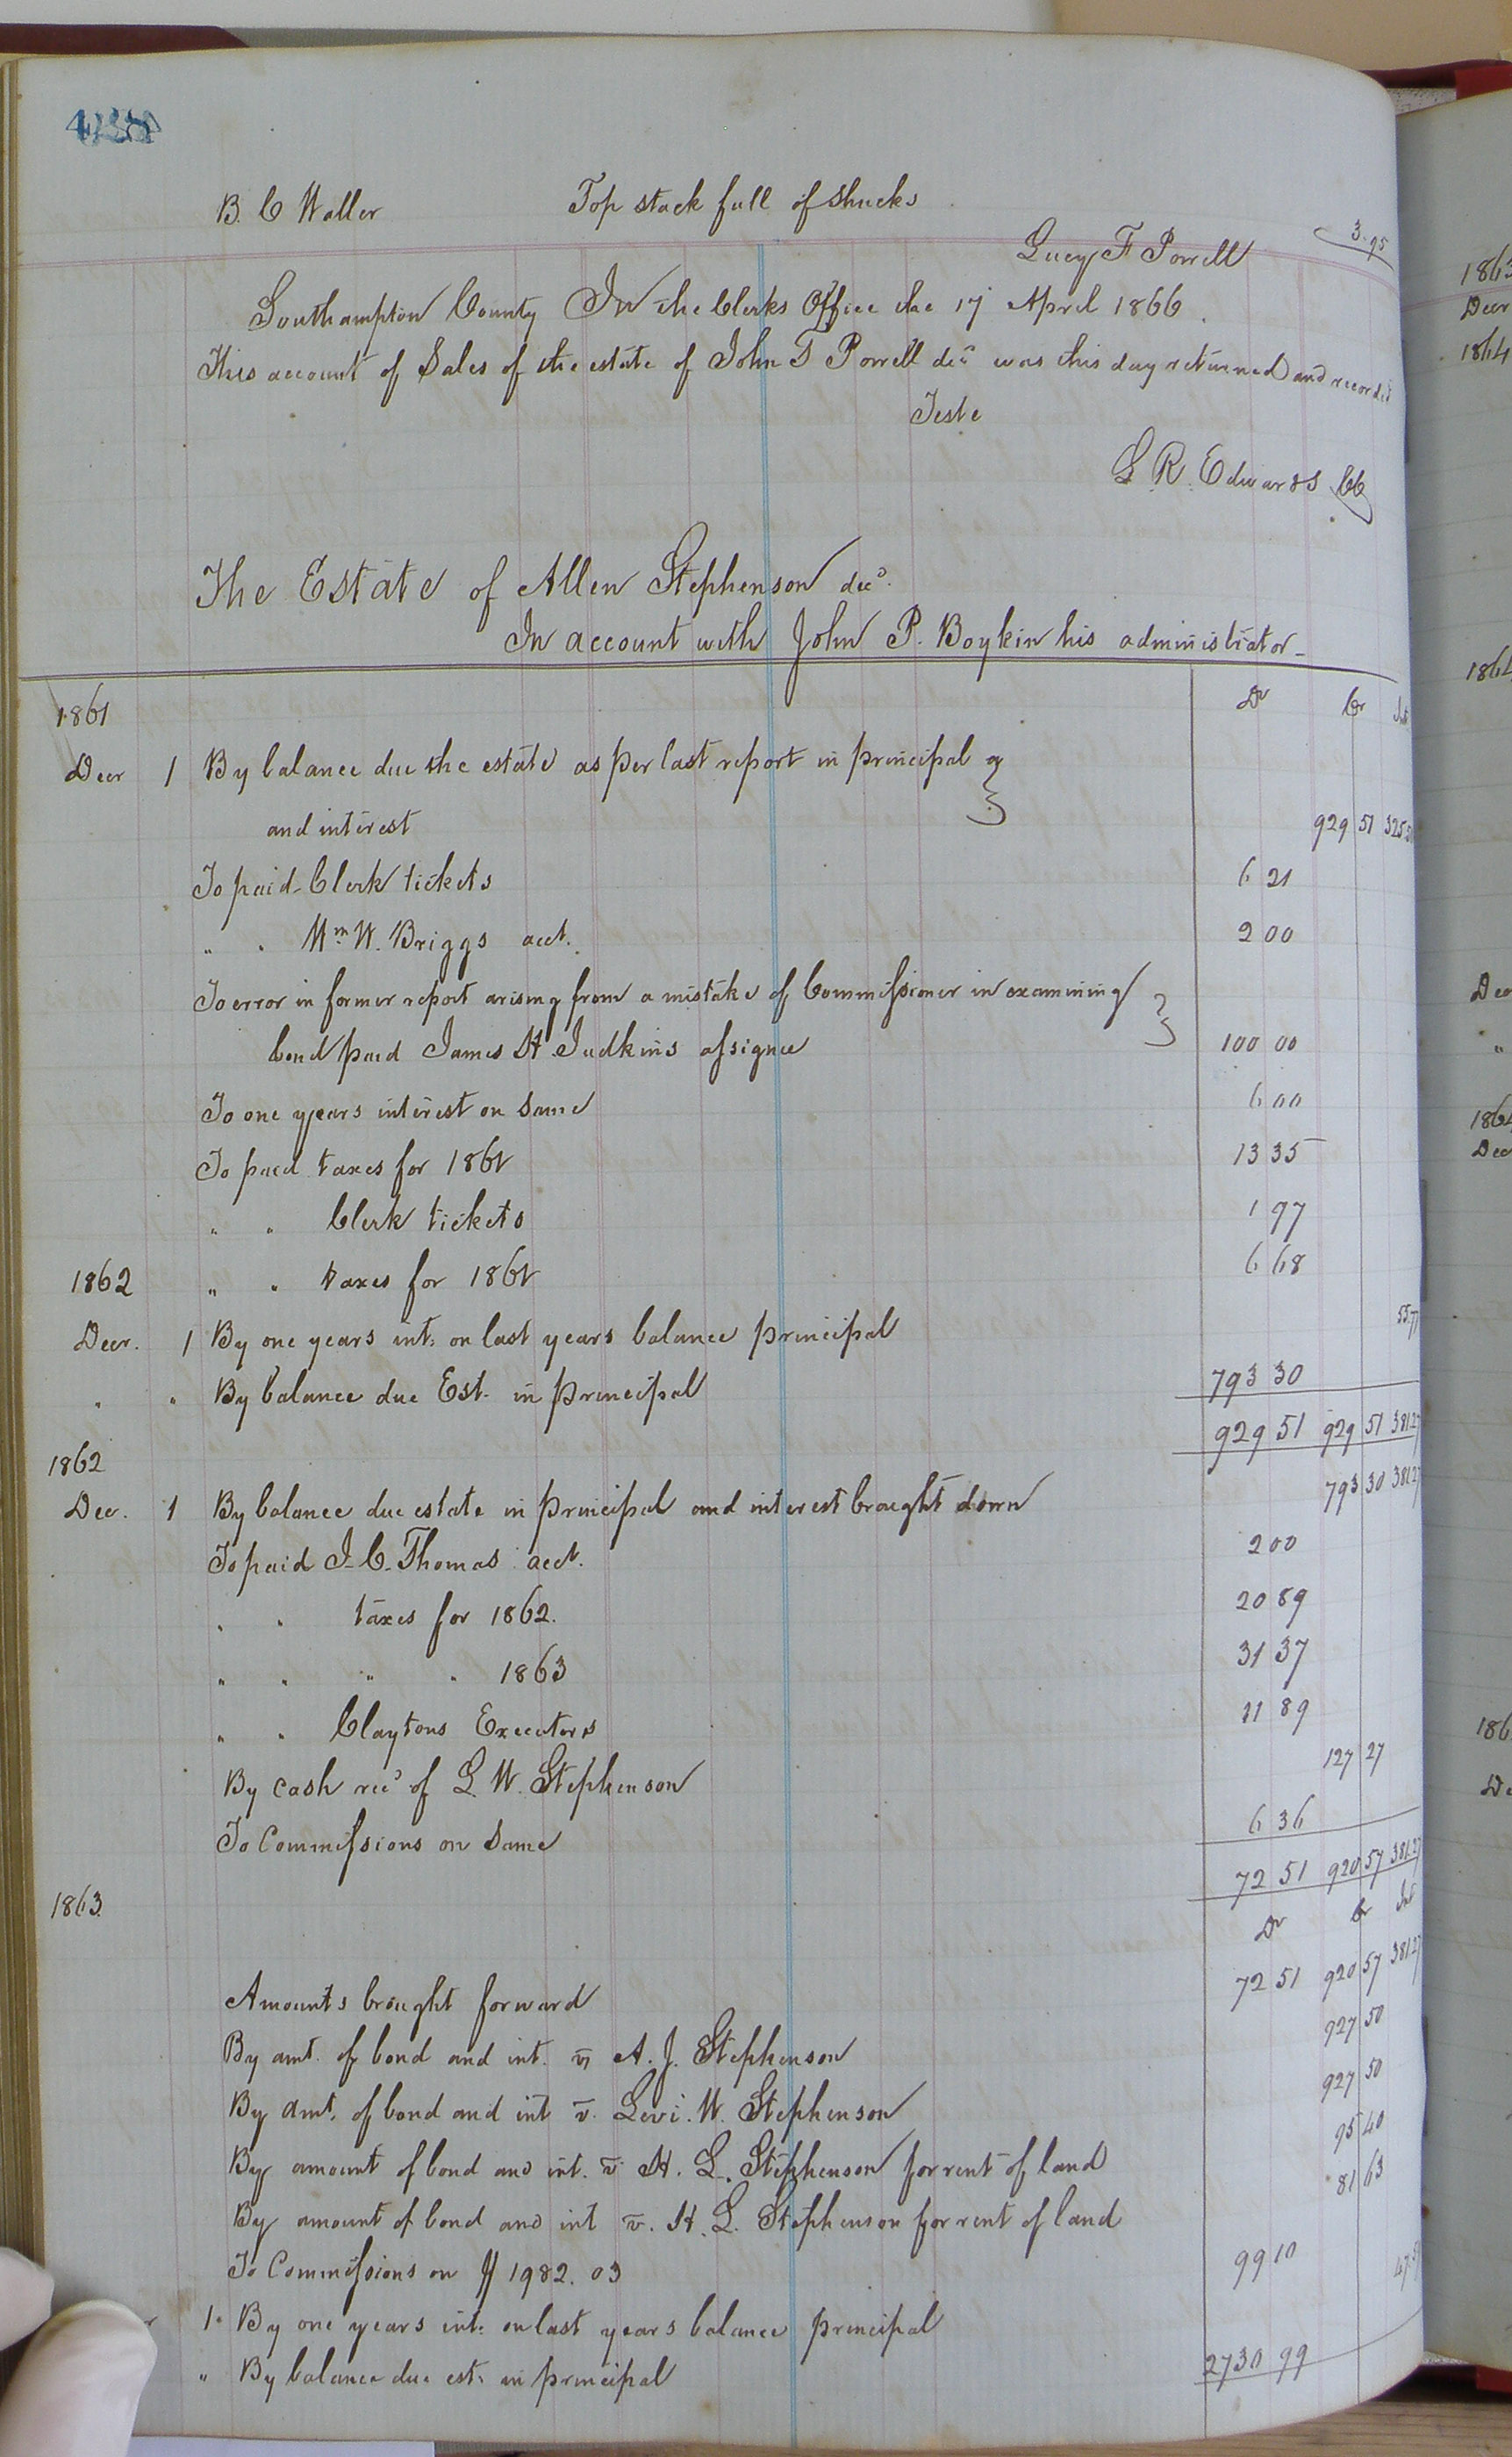 B. C Waller Top stack full of Shucks 3.95
Lucy F Powell
Southampton County In the Clerks Office the 17 April 1866.
This account of Sales of the estate of John T Powell decd was this day returned and recorded
Teste
L R. Edwards CC
The Estate of Allen Stephenson decd.
In account with John P. Boykin his administrator
1861 Dr Cr Int
Decr 1 By balance due the estate as per last report in principal
and interest 929 51 325.5
To paid Clerk tickets 6 21
" " Wm W. Briggs acct. 2 00
To error in former report arising from a mistake of Commissioner in examining
bond paid James H Judkins assignee 100 00
To one years interest on same 6 00
To paid taxes for 1861 13 35
" " Clerk tickets 1 97
1862 " " taxes for 1861 6 68
Decr. 1 By one years int: on last years balance principal 55.77
" " By balance due Est. in principal 793 30
929 51 929 51 381.27
1862
Dec. 1 By balance due estate in principal and interest brought down 793 30 381.27
To paid J. C. Thomas acct. 2 00
" " taxes for 1862. 20 89
" " " " 1863 31 37
" " Claytons Executors 11 89
By cash recd of L. W. Stephenson 127 27
To Commissions on same 6 36
72 51 920 57 381.27
1863. Dr Cr Int
Amounts brought forward 72 51 920 57 381.27
By amt. of bond and int. v A. J. Stephenson 927 50
By amt. of bond and int v. Levi. W. Stephenson 927 50
By amount of bond and int. v. H. L. Stephenson for rent of land 95 40
By amount of bond and int v. H. L. Stephenson for rent of land 81 63
To Commissions on $ 1982. 03 99 10
1. By one years int: on last years balance principal
" By balance due est: in principal 2730 99
1863
Decr
1864